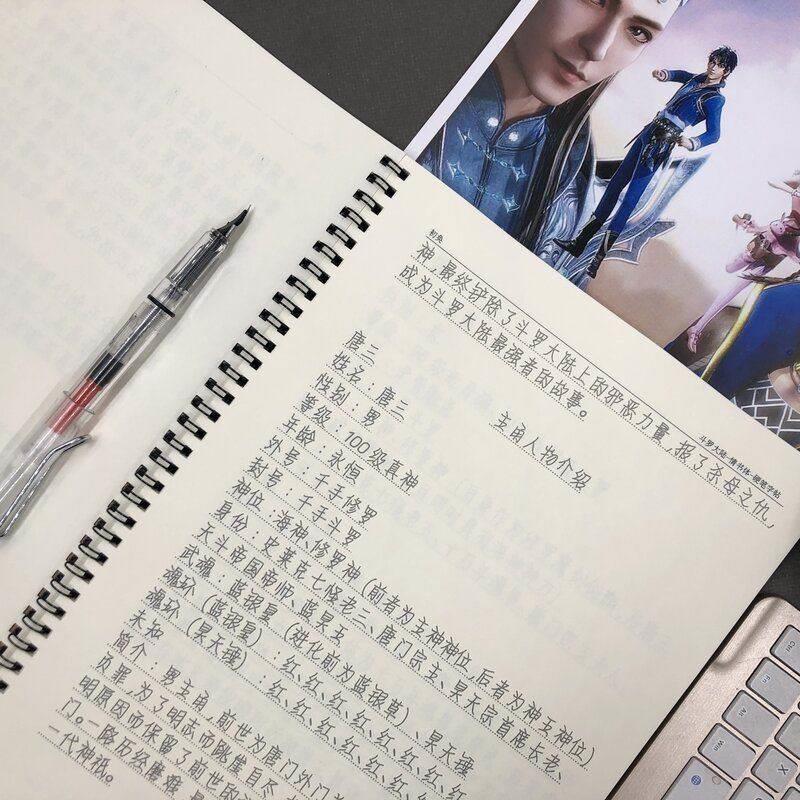 初央
神,最终铲除了斗罗大陆上的邪恶力量,报了杀母之仇,
成为斗罗大陆最强者的故事。
斗罗大陆-情书体-硬笔字帖
主角人物介绍
唐三
姓名:唐三
性别:男
等级:100级真神
年龄:永恒
外号:千手修罗
封号:千手斗罗
神位:海神、修罗神(前者为主神神位,后者为神王神位)
身份:史莱克七怪老三、唐门宗主、昊天宗首席长老、
天斗帝国帝师、蓝昊王
武魂:蓝银皇(进化前为蓝银草)、昊天锤
魂环(蓝银皇):红、红、红、红、红、红、红
魂环(昊天锤):红、红、红、红、红、红
未知
简介:男主角,前世为唐门外门
负罪,为了明志而跳崖自尽
明原因而保留了前世的
门。一路历经磨难
二代神祇。
Ctrl
Fn
Alt
Win